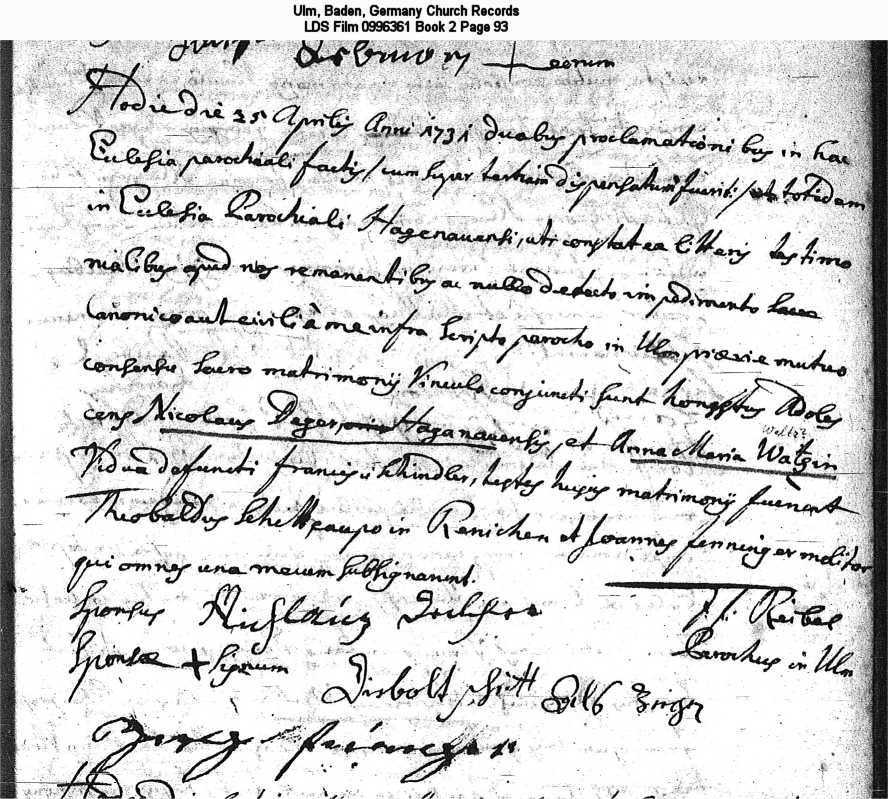 Ulm, Baden, Germany Church Records
LDS Film 0996361 Book 2 Page 93
Hodie die 25 Aprilis Anni 1731 duabus proclamationibus in hac
Ecclesia parochiali factis / cum super tertiam dispensatum fuerit / et totidem
in Eclesia Parochiali Hagenauensi, uti constat ex litteris testimo
nialibus apud nos remanentibus ac nullo detecto impedimento
Canonico aut civili à me infra scripto parocho in Ulm mutuo
consensu sacro matrimonij Vinculo conjuncti sunt honestus Adoles
Waltz
cens Nicolaus Deger, Haganauensis, et Anna Maria Watzin
Vidua defuncti francisci schindler, testes hujus matrimonij fuerunt
Theobaldus Schitt, caupo in Renichen et Joannes fenninger molitor
qui omnes una mecum subsignarunt.
Sponsus Nichlauß
J. J. Reibel
Sponsæ + signum
Parochus in Ulm
Diebolt schitt